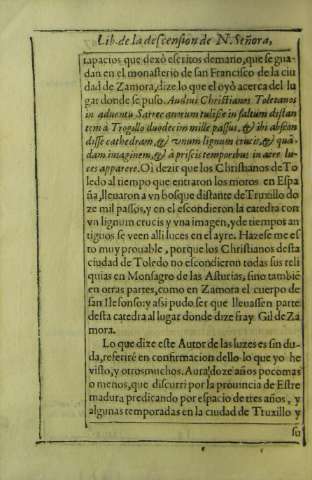 Lib. de la descension de N. Señora,
tapacios que dexò escritos demano, que se gua-
dan en el monasterio de san Francisco de la ciu
dad de Zamora, dize lo que el oyò acerca del lu
gar donde se puso. Audius Christianos Toletanos
in aduentu Sarracenorum tulisse in saltum distan
tem à Trogello duodecim mille passus, & ibi abscon
disse cathedram, & vnum lignum crucis, & quā-
dam imaginem, & à priscis temporibus in aere lu-
ces apparere. Oi dezir que los Christianos de To
ledo al tiempo que entraron los moros en Espa
ña, lleuaron a vn bosque distante de Truxillo do
ze mil passos, y en el escondieron la catedra con
vn lignum crucis y vna imagen, y de tiempos an
tiguos se veen alli luces en el ayre. Hazeseme es
to muy prouable, porque los Christianos desta
ciudad de Toledo no escondieron todas sus reli
quias en Monsagro de las Asturias, sino tambiē
en otras partes, como en Zamora el cuerpo de
san Ilefonso: y asi pudo ser que lleuassen parte
desta catedra al lugar donde dize fray Gil de Za
mora.
Lo que dize este Autor de las luzes es sin du-
da, referirè en confirmacion dello lo que yo he
visto, y otros muchos. Aurà doze años poco mas
o menos, que discurri por la prouincia de Estre
madura predicando por espacio de tres años, y
algunas temporadas en la ciudad de Truxillo y
su